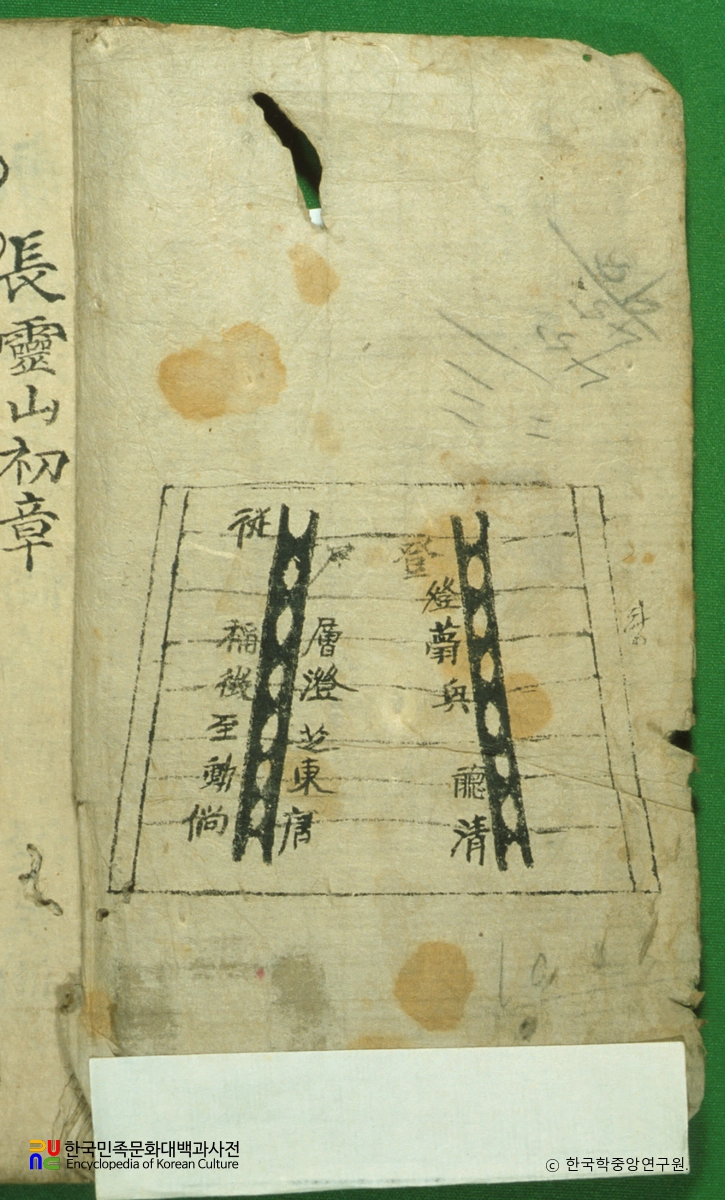 長靈山初章
登
燈
兵
聽
清
層
澄
芝
東
唐
從
稱
徵
至
動
倘
한국민족문화대백과사전
Encyclopedia of Korean Culture
ⓒ 한국학중앙연구원.